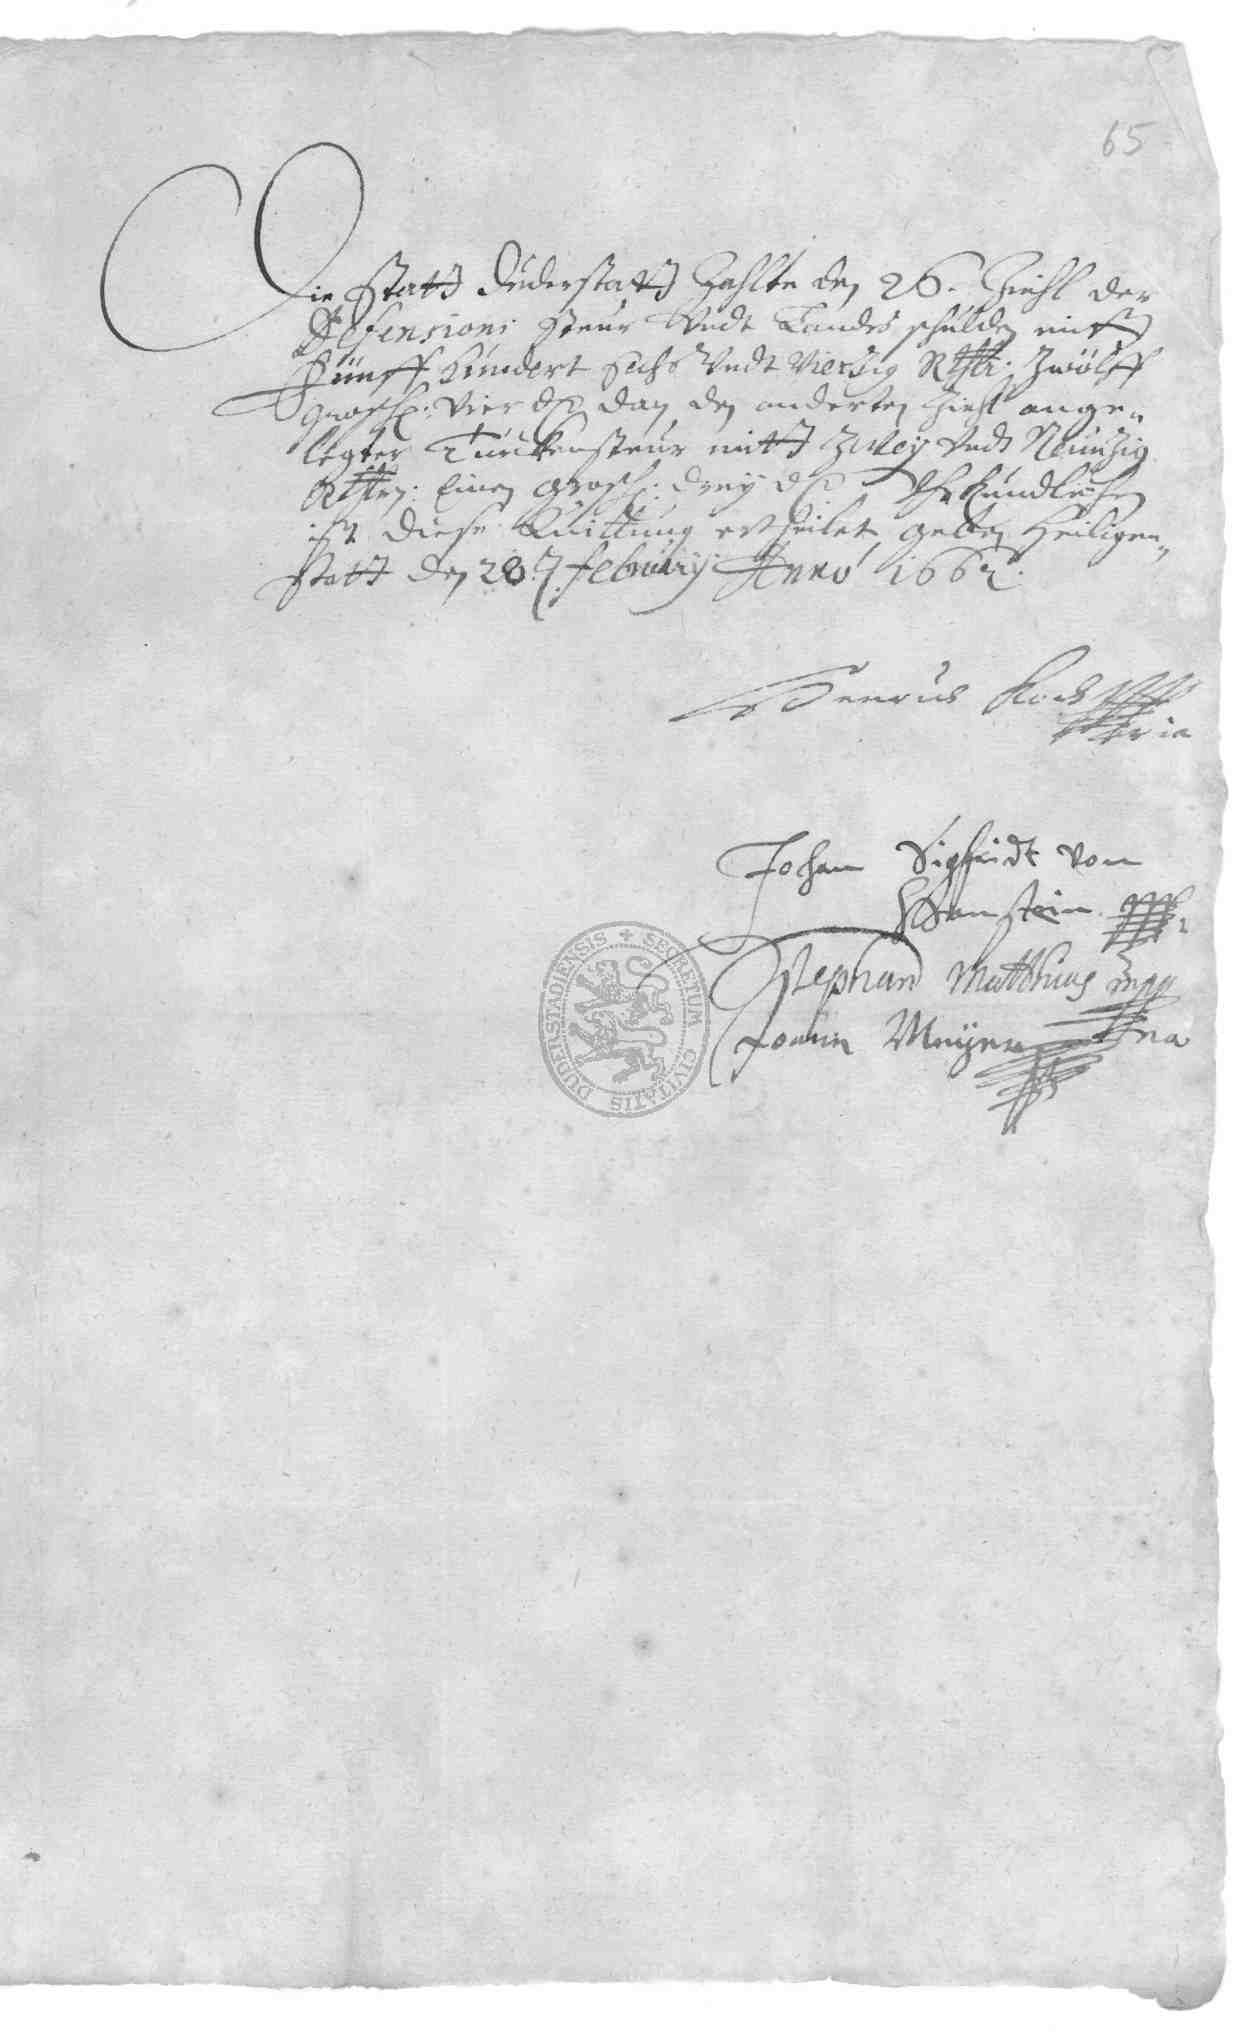 65
Die Statt Duderstatt Zahlte den 26. Ziehl der
Defensions Steur Undt Landes schulden mitt
Fünff hundert Sechs Undt Viertzig Rthlr: Zwölff
grosch: Vier d dan den anderten Ziehl ange=
legter Türckensteur mitt Zwey Undt Neuntzig
Rthlrn: Einen grosch: drey d Uhrkundtlichen
ist diese Quittung ertheilet, geben Heiligen=
statt den 28. february Anno 1662.
Johan Sigfridt von
Hanstein
Stephan Matthias mpp
Meyer
SECRETUM CIVITATIS DUDERSTADENSIS